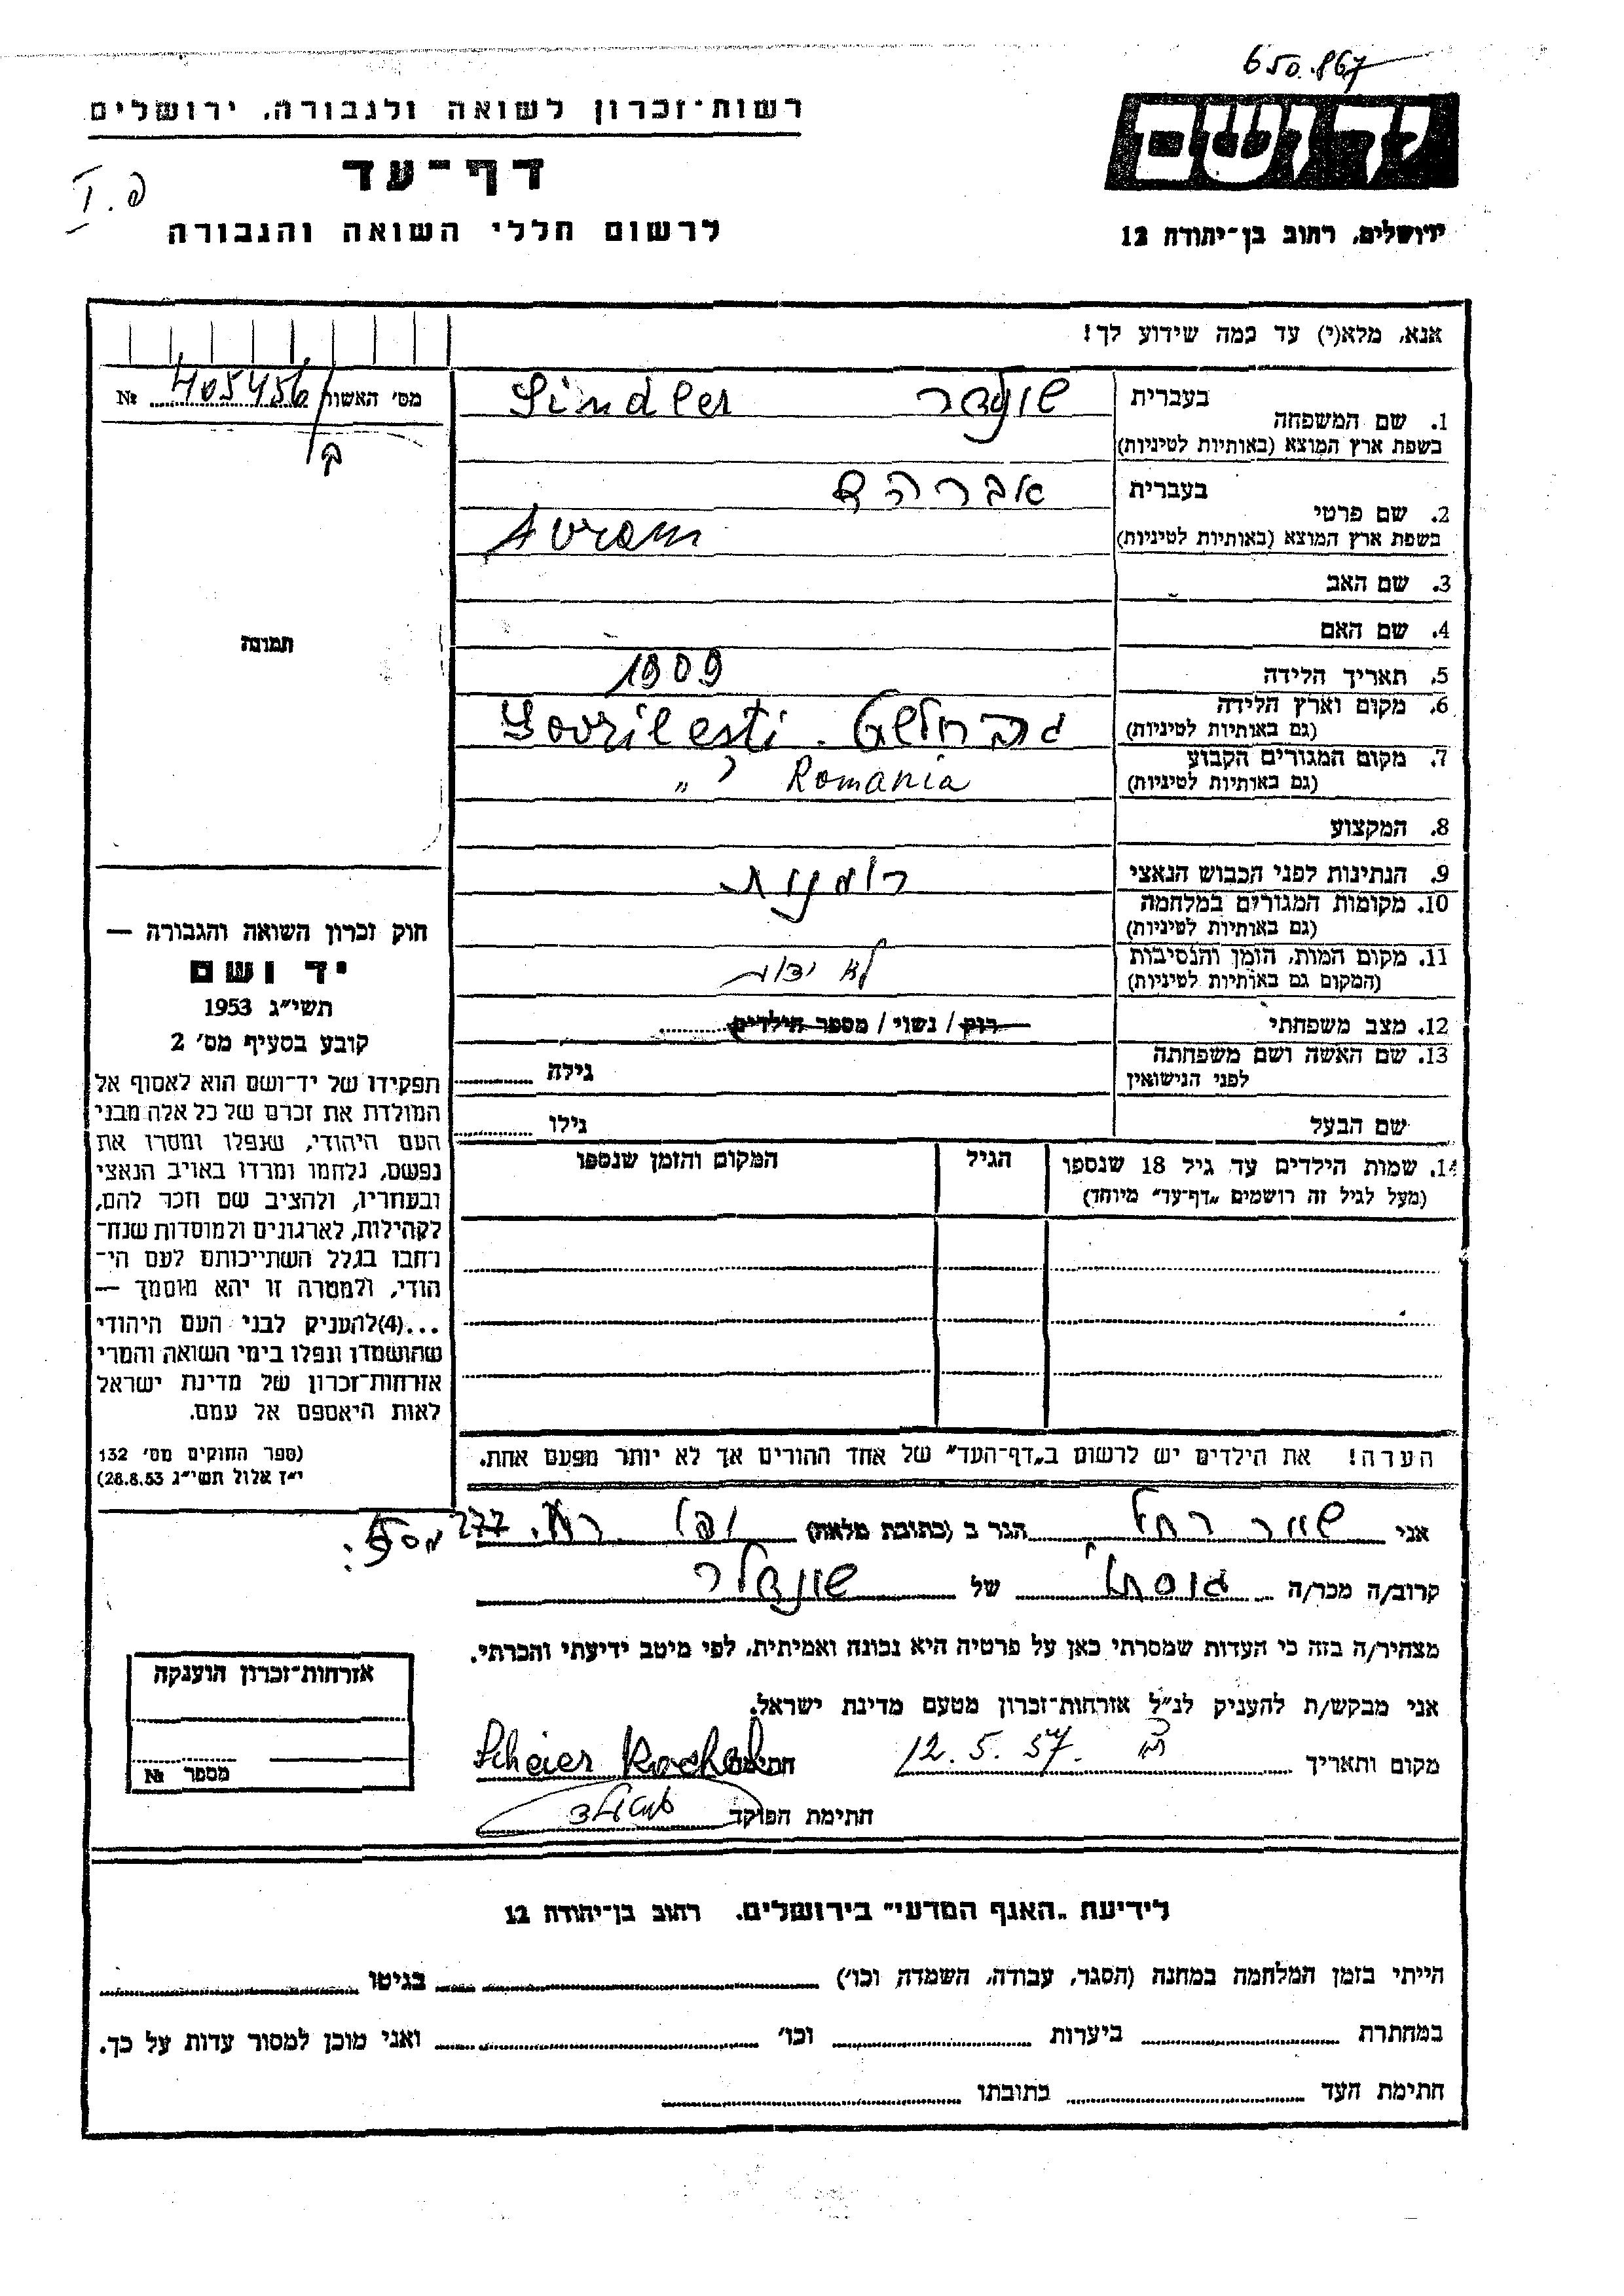 650.867
רשות־זכרון לשואה ולגבורה, ירושלים
יד ושם
דף־עד
לרשום חללי השואה והגבורה
ירושלים, רחוב בן־יהודה 12
אנא, מלא(י) עד כמה שידוע לך!
מס׳ האשור 405456 №
1. שם המשפחה
בעברית
בשפת ארץ המוצא (באותיות לטיניות)
Sindler
2. שם פרטי
בעברית אברהם
בשפת ארץ המוצא (באותיות לטיניות) Avram
3. שם האב
4. שם האם
תמונה
5. תאריך הלידה 1909
6. מקום וארץ הלידה
(גם באותיות לטיניות)
7. מקום המגורים הקבוע
(גם באותיות לטיניות) Romania
8. המקצוע
9. הנתינות לפני הכבוש הנאצי רומנית
10. מקומות המגורים במלחמה
(גם באותיות לטיניות)
11. מקום המות, הזמן והנסיבות לא ידוע
(המקום גם באותיות לטיניות)
12. מצב משפחתי רוק / נשוי / מספר הילדים
13. שם האשה ושם משפחתה גילה
לפני הנישואין
שם הבעל גילו
14. שמות הילדים עד גיל 18 שנספו הגיל המקום והזמן שנספו
(מעל לגיל זה רושמים „דף־עד״ מיוחד)
הערה! את הילדים יש לרשום ב„דף־העד״ של אחד ההורים אך לא יותר מפעם אחת.
חוק זכרון השואה והגבורה —
יד ושם
תשי״ג 1953
קובע בסעיף מס׳ 2
תפקידו של יד־ושם הוא לאסוף אל
המולדת את זכרם של כל אלה מבני
העם היהודי, שנפלו ומסרו את
נפשם, נלחמו ומרדו באויב הנאצי
ובעוזריו, ולהציב שם וזכר להם,
לקהילות, לארגונים ולמוסדות שנח־
רחבו בגלל השתייכותם לעם הי־
הודי, ולמטרה זו יהא מוסמך —
...(4)להעניק לבני העם היהודי
שהושמדו ונפלו בימי השואה והמרי
אזרחות־זכרון של מדינת ישראל
לאות היאספם אל עמם.
(ספר החוקים מס׳ 132
י״ז אלול תשי״ג 28.8.53)
אני רחל הגר ב (כתובת מלאה) 277
קרוב/ה מכר/ה של שינדלר
מצהיר/ה בזה כי העדות שמסרתי כאן על פרטיה היא נכונה ואמיתית, לפי מיטב ידיעתי והכרתי.
אני מבקש/ת להעניק לנ״ל אזרחות־זכרון מטעם מדינת ישראל.
מקום ותאריך 12.5.57 חתימה Scheier Rachel
חתימת הפוקד
אזרחות־זכרון הוענקה
מספר №
לידיעת „האגף המדעי״ בירושלים, רחוב בן־יהודה 12
הייתי בזמן המלחמה במחנה (הסגר, עבודה, השמדה, וכו׳) בגיטו
במחתרת ביערות וכו׳ ואני מוכן למסור עדות על כך.
חתימת העד כתובתו